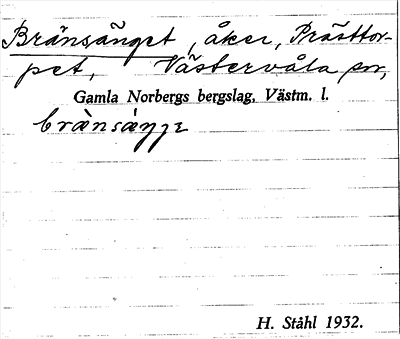 Bränsänget, åker, Prästtor-
pet, Västervåla sn,
Gamla Norbergs bergslag, Västm. l.
H. Ståhl 1932.